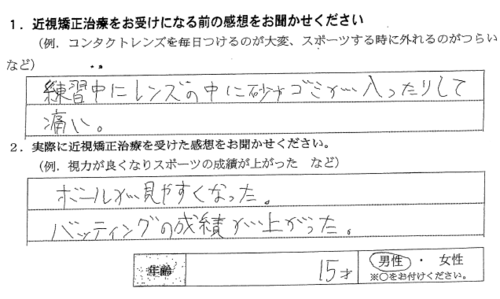 1．近視矯正治療をお受けになる前の感想をお聞かせください
（例．コンタクトレンズを毎日つけるのが大変、スポーツする時に外れるのがつらい
など）
練習中にレンズの中に砂やゴミが入ったりして
痛い。
2．実際に近視矯正治療を受けた感想をお聞かせください。
（例．視力が良くなりスポーツの成績が上がった　など）
ボールが見やすくなった。
バッティングの成績が上がった。
年齢　15才　男性・女性
※○をお付けください。